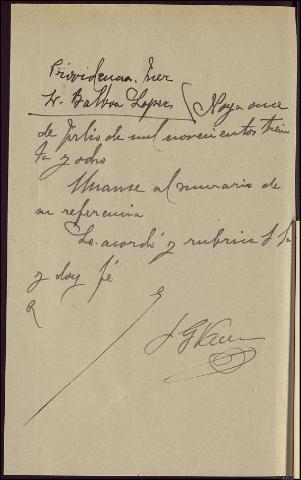 Providencia. Juez
Sr. Balboa Lopez / Noya once
de Julio de mil novecientos trein
ta y ocho
Unanse al sumario de
su referencia
Lo acordó y rubrica S Sa
y doy fé